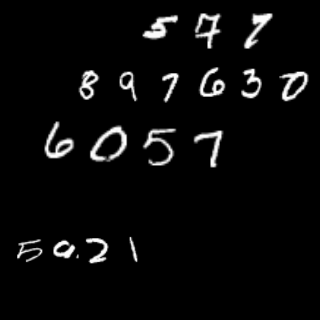 577
897630
6057
5921